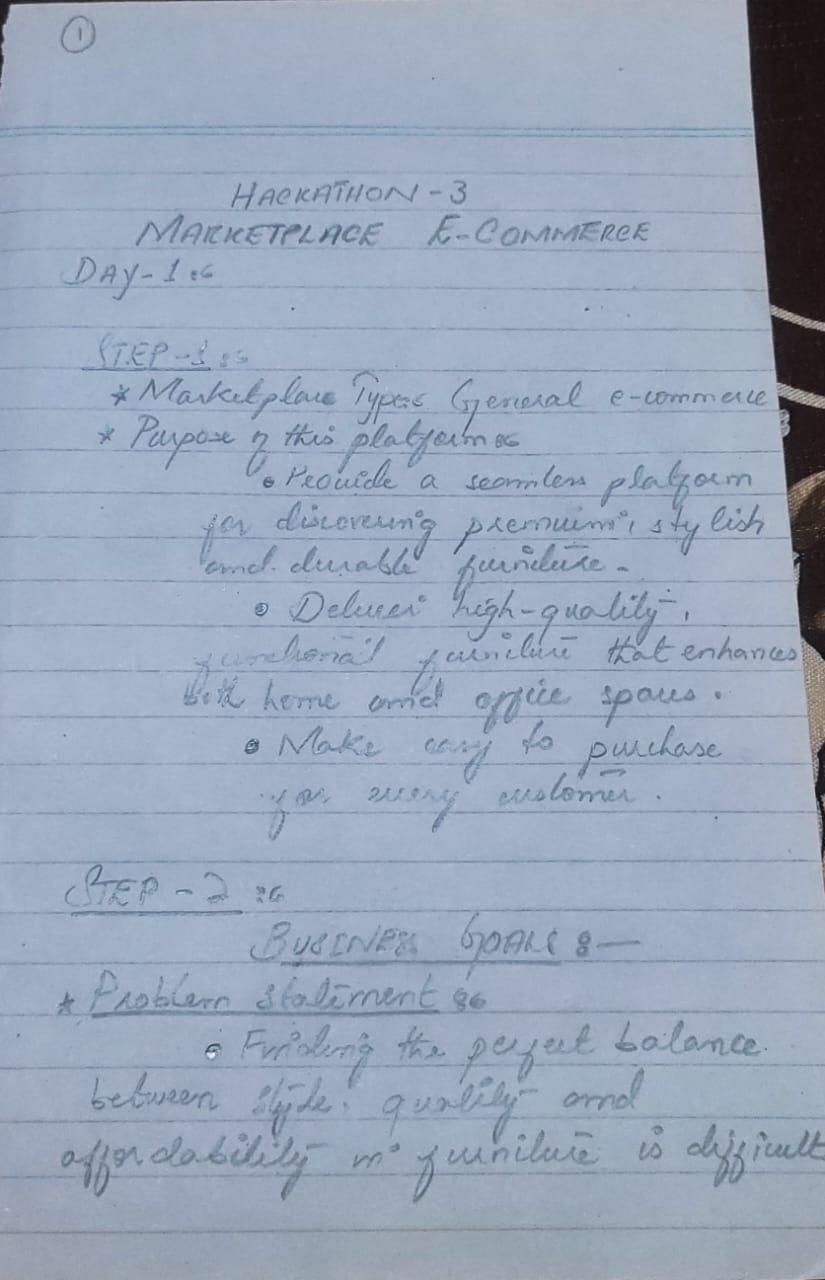 1
HACKATHON - 3
MARKETPLACE E-COMMERCE
DAY-1 :-
STEP-1 :-
* Marketplace Type:- General e-commerce
* Purpose of this platform :-
• Provide a seamless platform
for discovering premium, stylish
and durable furniture.
• Deliver high-quality,
functional furniture that enhances
both home and office spaces.
• Make easy to purchase
for every customer.
STEP - 2 :-
BUSINESS GOALS :-
* Problem Statement :-
• Finding the perfect balance
between style, quality and
affordability in furniture is difficult